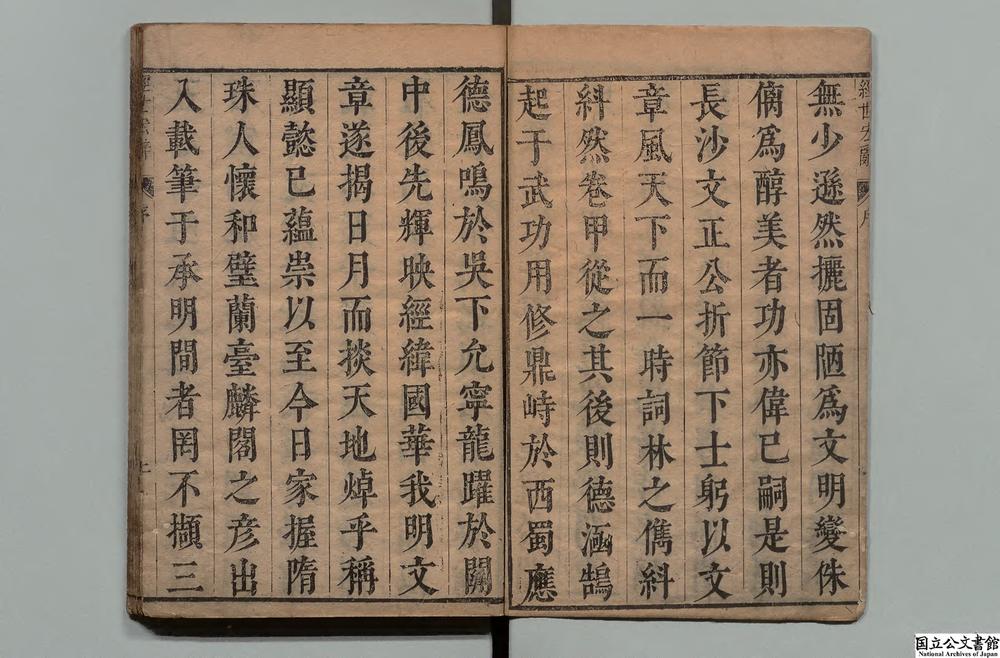 無少遜然攦固陋為文明變侏
㒧為醇美者功亦偉已嗣是則
長沙文正公折節下士躬以文
章風天下而一時詞林之儁糾
糾然卷甲從之其後則德涵鵠
起于武功用修鼎峙於西蜀應
德鳳鳴於吳下允寧龍躍於關
中後先輝映經緯國華我明文
章遂揭日月而掞天地焯乎稱
顯懿已蘊崇以至今日家握隋
珠人懷和璧蘭臺麟閣之彥出
入載筆于承明間者罔不擷三
序
国立公文書館
National Archives of Japan